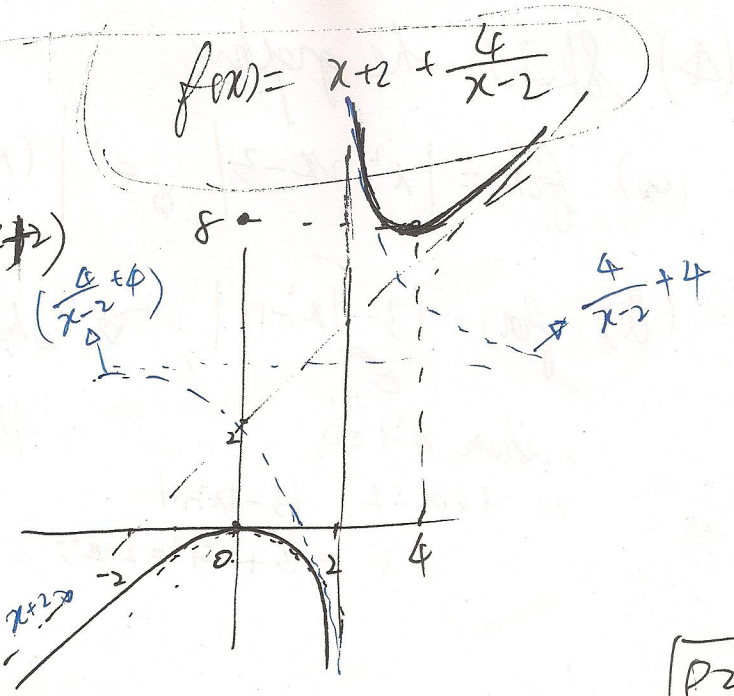 f(x) = x+2 + 4/(x-2)
+2)
8
(4/(x-2) +4)
4/(x-2) +4
2
-2
0
2
4
x+2